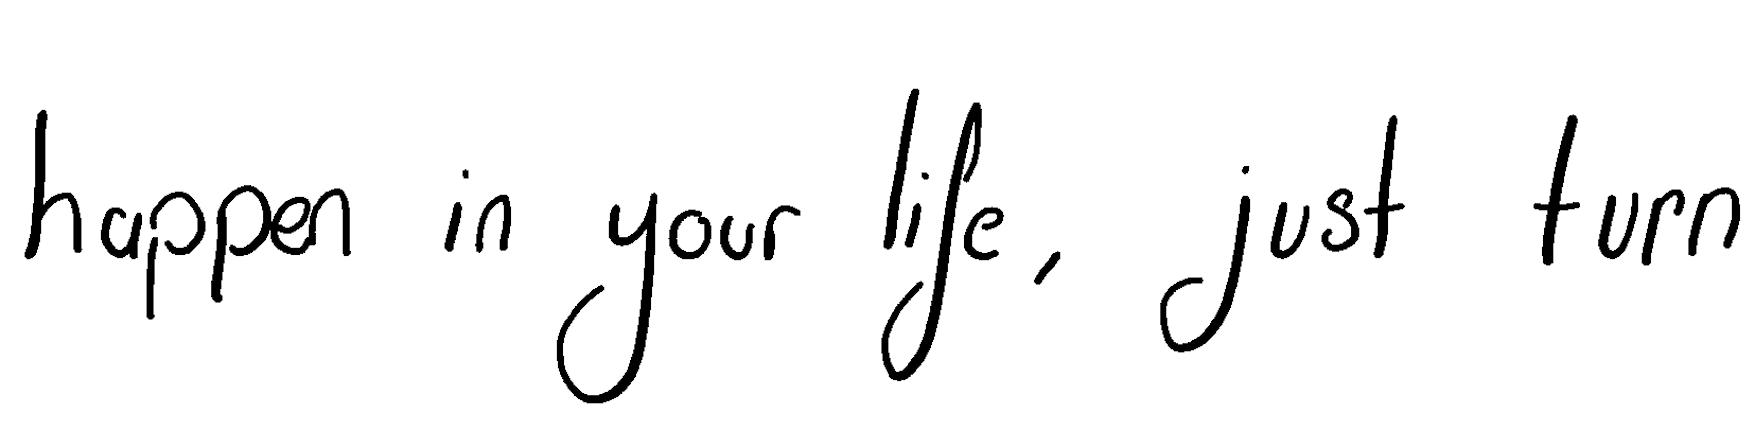 happen in your life, just turn